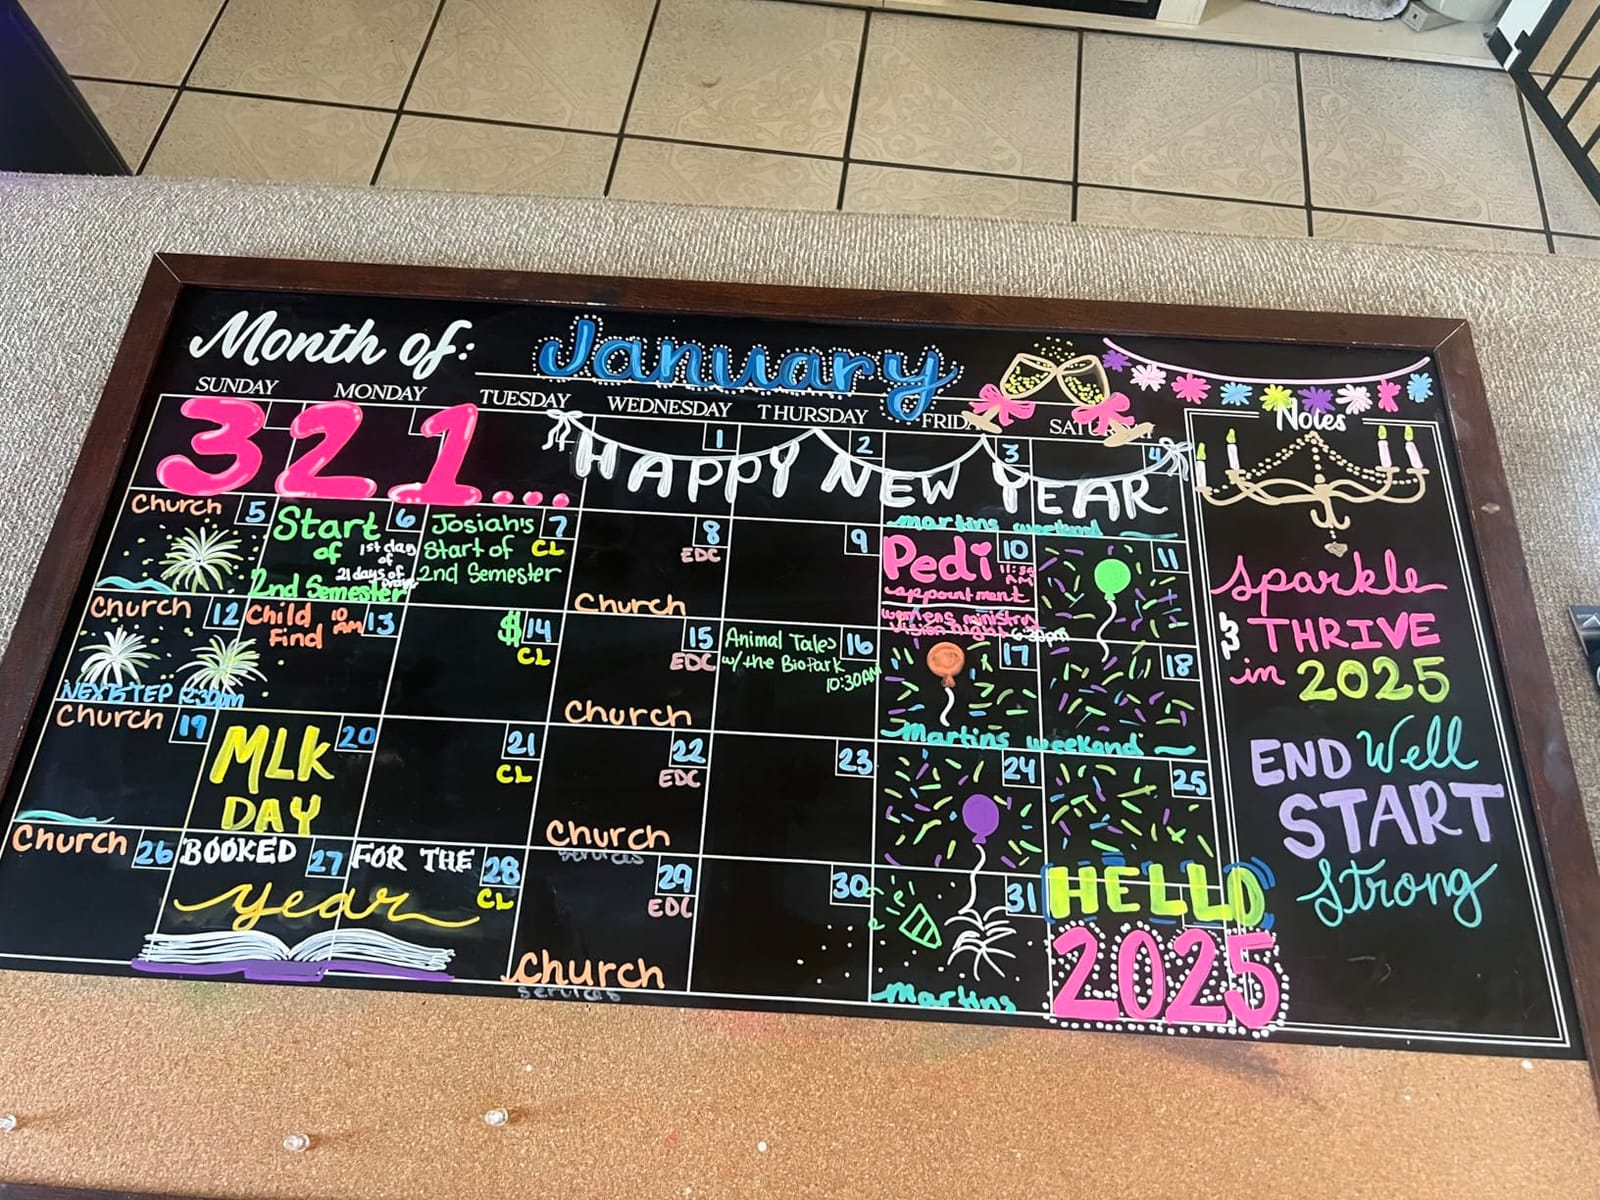 Month of: January
SUNDAY MONDAY TUESDAY WEDNESDAY THURSDAY FRIDAY SATURDAY
Notes
321...
1 2 3 4
HAPPY NEW YEAR
Church 5
Start 6
of
2nd Semester
1st day
of
21 days of
Josiah's 7
Start of CL
2nd Semester
8
EDC
Church
9
martins weekend
Pedi 10
11:
AM
appointment
womens ministry
vision night 6:30pm
11
Church 12
NEXT STEP 12:30pm
Child 10 AM 13
Find
$14
CL
15
EDC
Church
Animal Tales 16
w/the BioPark
10:30AM
17
18
Martins weekend
Church 19
MLK 20
DAY
21
CL
22
EDC
Church
services
23
24
25
Church 26
BOOKED 27 FOR THE 28
year CL
29
EDC
church
services
30
31
Martins
HELLO
2025
sparkle
& THRIVE
in 2025
END Well
START
Strong